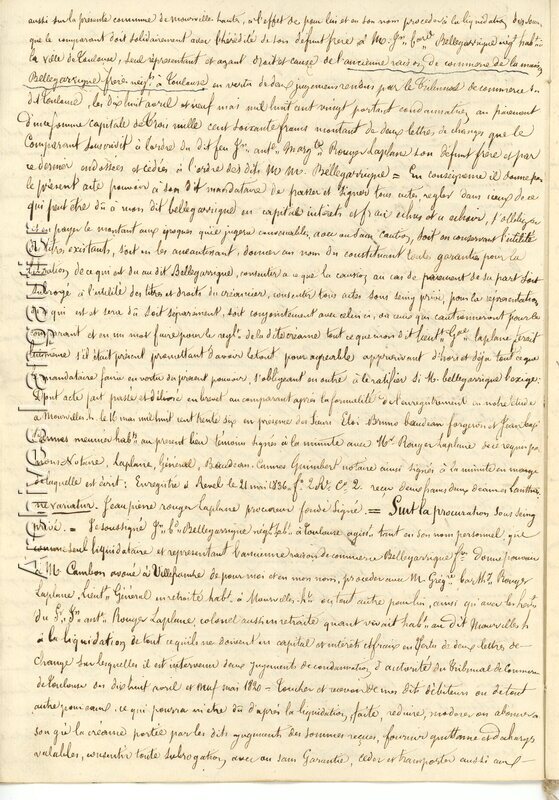 aussi sur la présente commune de mourvelles hautes, à l'effet de pour lui et en son nom procéder à la liquidation des sommes
que le comparant doit solidairement avec l'hérédité de son défunt frère à M. Jn. Bellegarrigue négt. habt. à
la ville de Toulouse, seul représentant et ayant droit et cause de l'ancienne raison de commerce de la maison
Bellegarrigue frère négts. à Toulouse en vertu de deux jugemens rendus par le Tribunal de commerce
dudit Toulouse, les dix huit avril et neuf mai mil huit cent vingt portant condamnation, au paiement
d'une somme capitale de trois mille cent soixante francs montant de deux lettres de change que le
Comparant souscrivit à l'ordre du dit feu Jn. ant. Marg. Rouger Laplane son défunt frère et par
ce dernier endossées et cédées à l'ordre des dits M. M. Bellegarrigue = en conséquence il donne par
le présent acte pouvoir à son dit mandataire de passer et signer tous actes, régler dans iceux de ce
qui peut être dû à mon dit bellegarrigue en capital intérêts et frais échus et à échoir, s'obliger
et en payer le montant aux époques qu'il jugera convenable, avec ou sans caution, soit en conservant l'utilité
des titres existants, soit en les anéantissant, donner au nom du constituant toutes garanties pour la
de ce qui est dû au dit Bellegarrigue, consentir à ce que la caution au cas de paiement de sa part soit
subrogé à l'utilité des titres et droits du créancier, consentir tous actes sous seing privé, pour la représentation
qui est et sera dû soit séparément, soit conjointement avec celui ou ceux qui cautionneront pour le
comparant et en un mot faire pour le régl. de la dite créance tout ce que mon dit lieut. Gal. laplane ferait
lui même s'il était présent promettant d'avoir le tout pour agréable approuvant d'hors et déjà tout ce que
mandataire faira en vertu du présent pouvoir, s'obligeant en outre à le ratifier si Mr. bellegarrigue l'exige.
Dont acte fait passé et délivré en brevet au comparant après la formalité de l'enregistrement en notre étude
à Mourvelles ht. le 16 mai mil huit cent trente six en présence des sieurs Eloi Bruno baudean forgeron et Jean
Cannes meunier habts. au présent lieu témoins signés à la minute avec Mr. Rouger Laplane de ce requis par
nous Notaire, Laplane, Général, Baudean, Cannes Gumbert notaire ainsi signés à la minute en marge
de laquelle est écrit : Enregistré à Revel le 21 mai 1836 fo. 2 Ro. Ce. 2. reçu deux francs
ne varietur. Jean pierre rouger laplane procureur fondé Signé. = Suit la procuration sous seing
privé. = Je soussigné Jn. Bte. Bellegarrigue négt. habt. à Toulouse agist. tout en son nom personnel, que
comme seul liquidataire et représentant l'ancienne raison de commerce Bellegarrigue fr. donne pouvoir
à M. Cambon avoué à Villefranche de pour moi et en mon nom, procéder avec M. Grégre. barthy. Rouger
Laplane, lieutt. Général en retraite habt. à Mourvelles hte. ou tout autre pour lui, ainsi qu'avec les héritiers
du Sr. Jn. ant. Rouger Laplane, colonel aussi en retraite quant vivait habt. au dit Mourvelles h
à la liquidation de tout ce qu'ils me doivent en capital et intérêts et frais en vertu de deux lettres de
change sur lesquelles il est intervenu deux jugements de condamnation, d'autorité du Tribunal de Commerce
de Toulouse des dix huit avril et neuf mai 1820 = Toucher et recevoir de mes dits débiteurs ou de tout
autre pour eux, ce qui pourra m'être dû d'après la liquidation faite, réduire, modérer ou abonner
son que la créance portée par les dits jugements des sommes reçues, fournir quittance et décharges
valables, consentir toute subrogation, avec ou sans Garantie, céder et transporter aussi aux
Archives Lamzauville